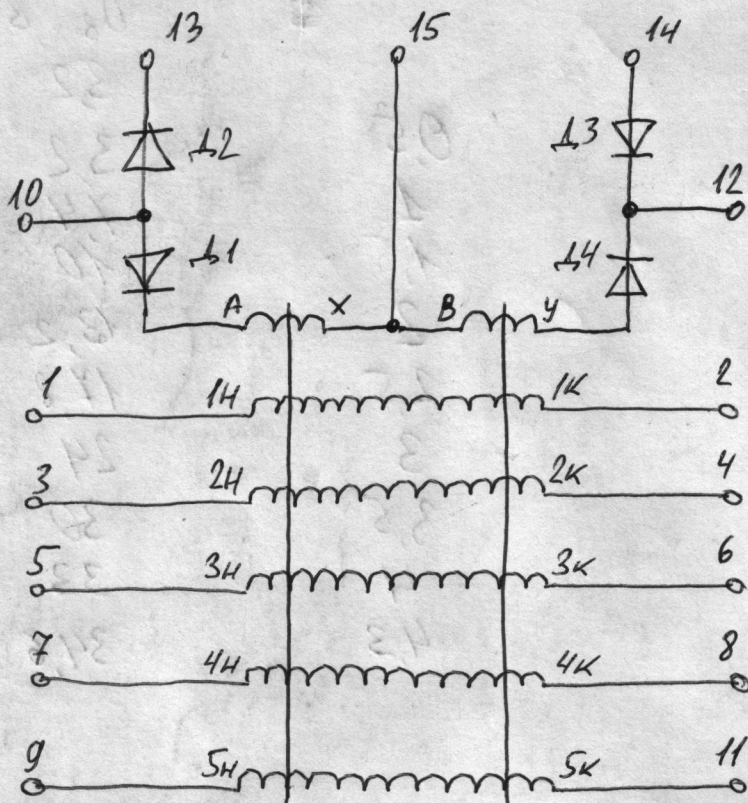 13 15 14
Д2 Д3
10 12
Д1 Д4
А Х В У
1 1Н 1К 2
3 2Н 2К 4
5 3Н 3К 6
7 4Н 4К 8
9 5Н 5К 11